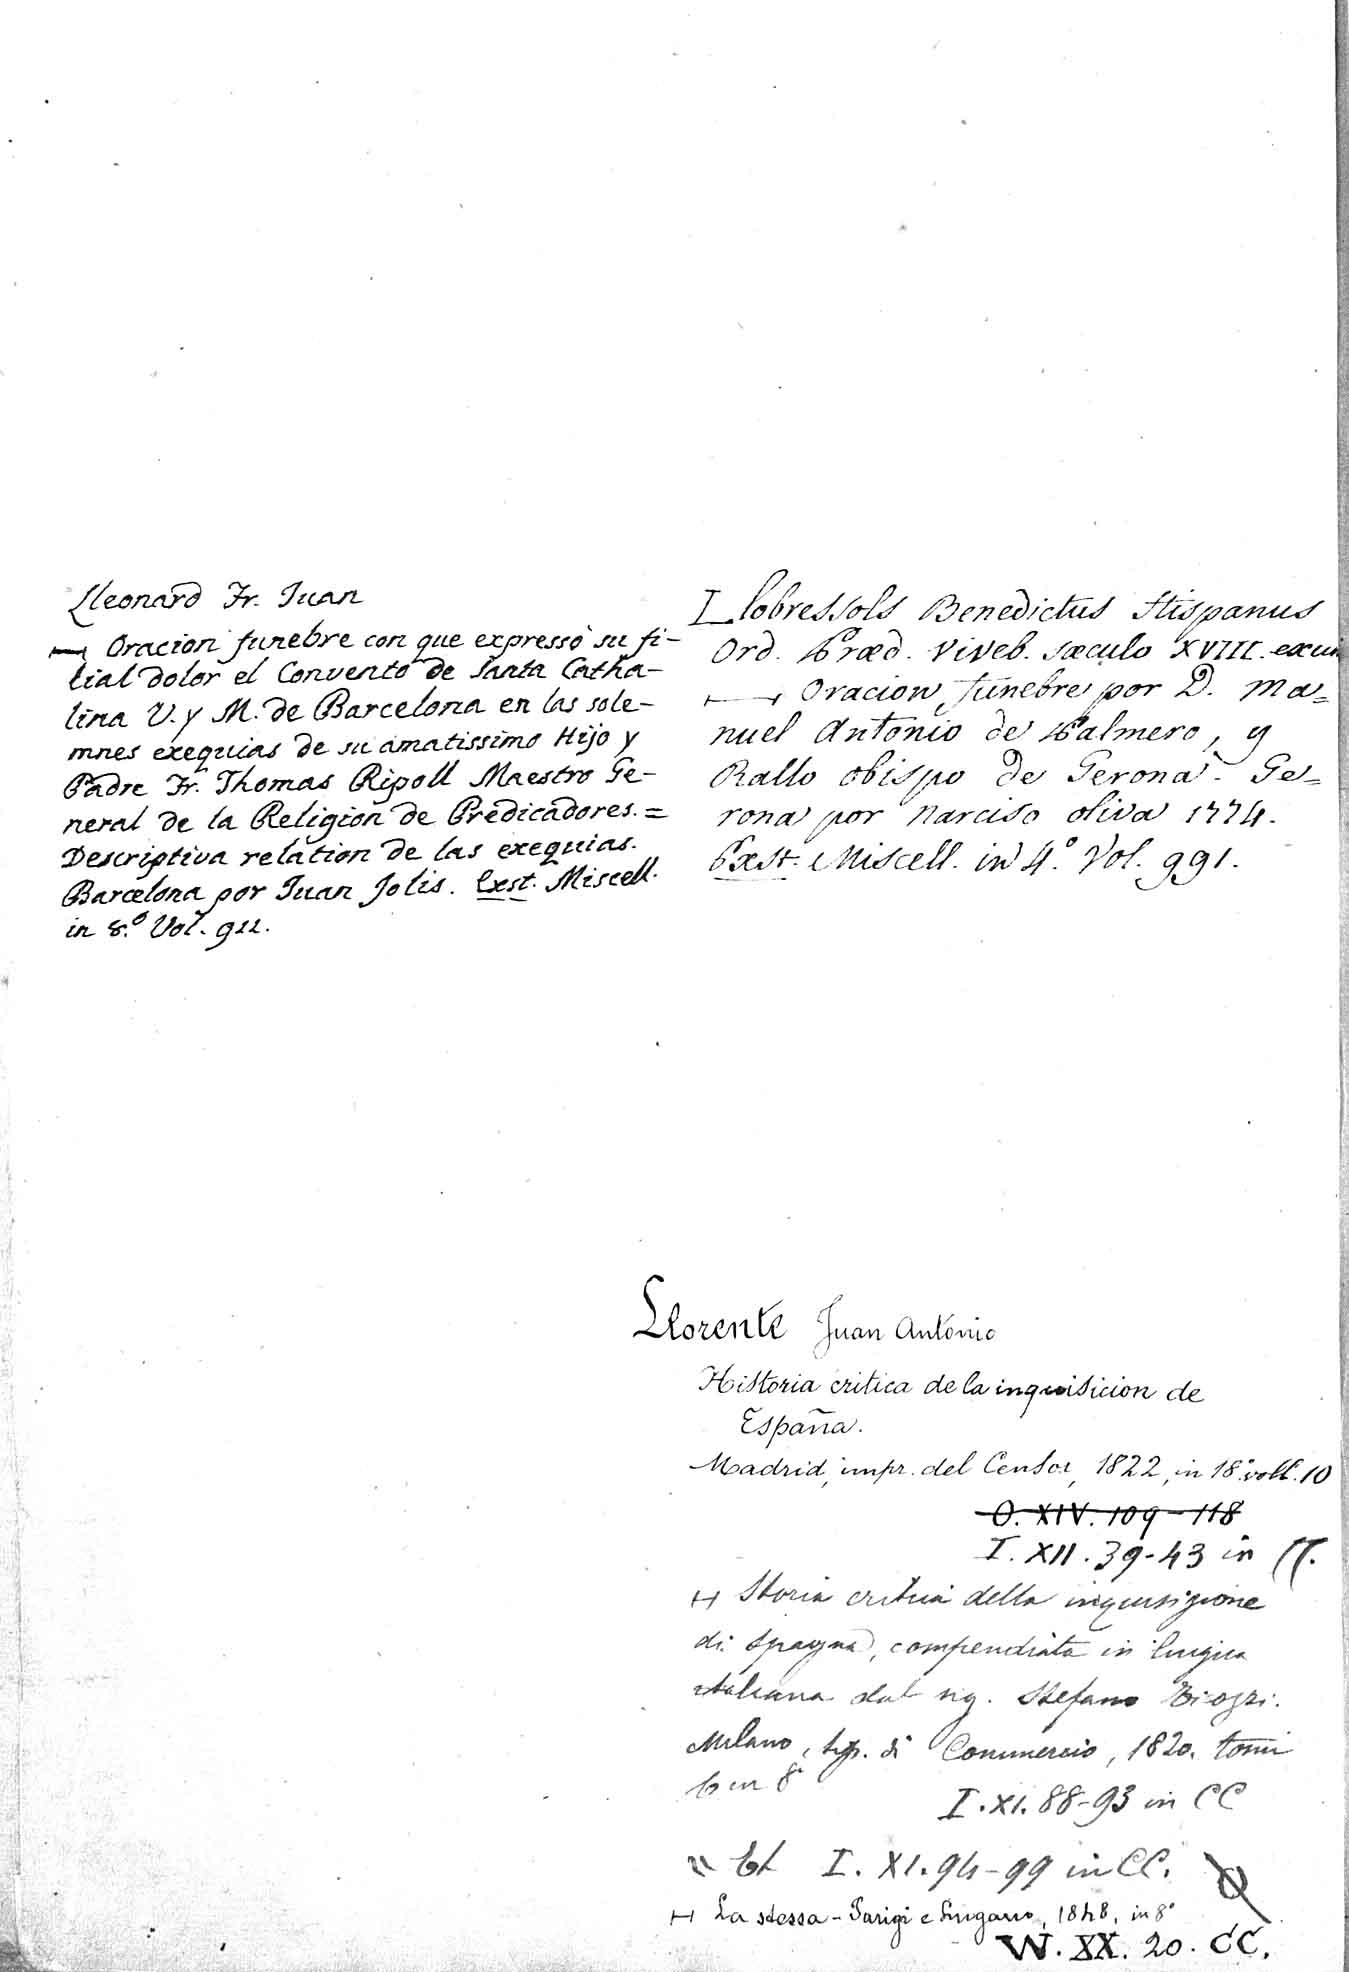 Lleonard Fr. Juan
— Oracion funebre con que expressò su fi-
lial dolor el Convento de Santa Catha-
lina V. y M. de Barcelona en las sole-
mnes exequias de su amatissimo Hijo y
Padre Fr. Thomas Ripoll Maestro Ge-
neral de la Religion de Predicadores. =
Descriptiva relation de las exequias.
Barcelona por Juan Jolis. Exst. Miscell.
in 8.º Vol. 922.
Llobressols Benedictus Hispanus
Ord. Præd. viveb. sæculo XVIII.
— Oracion funebre por D. Ma=
nuel Antonio de Palmero, y
Rallo obispo de Gerona. Ge=
rona por Narciso oliva 1774.
Exst. Miscell. in 4.º Vol. 991.
Llorente Juan Antonio
Historia critica de la inquisicion de
España.
Madrid, impr. del Censor, 1822, in 18º voll. 10
O. XIV. 109-118
I. XII. 39-43 in CC.
— Storia critica della inquisizione
di Spagna, compendiata in lingua
italiana dal sig. Stefano
Milano, tip. di Commercio, 1820. tomi
6 in 8º
I. XI. 88-93 in CC
Et I. XI. 94-99 in CC.
— La stessa - Parigi e Lugano, 1848, in 8º
W. XX. 20. CC.